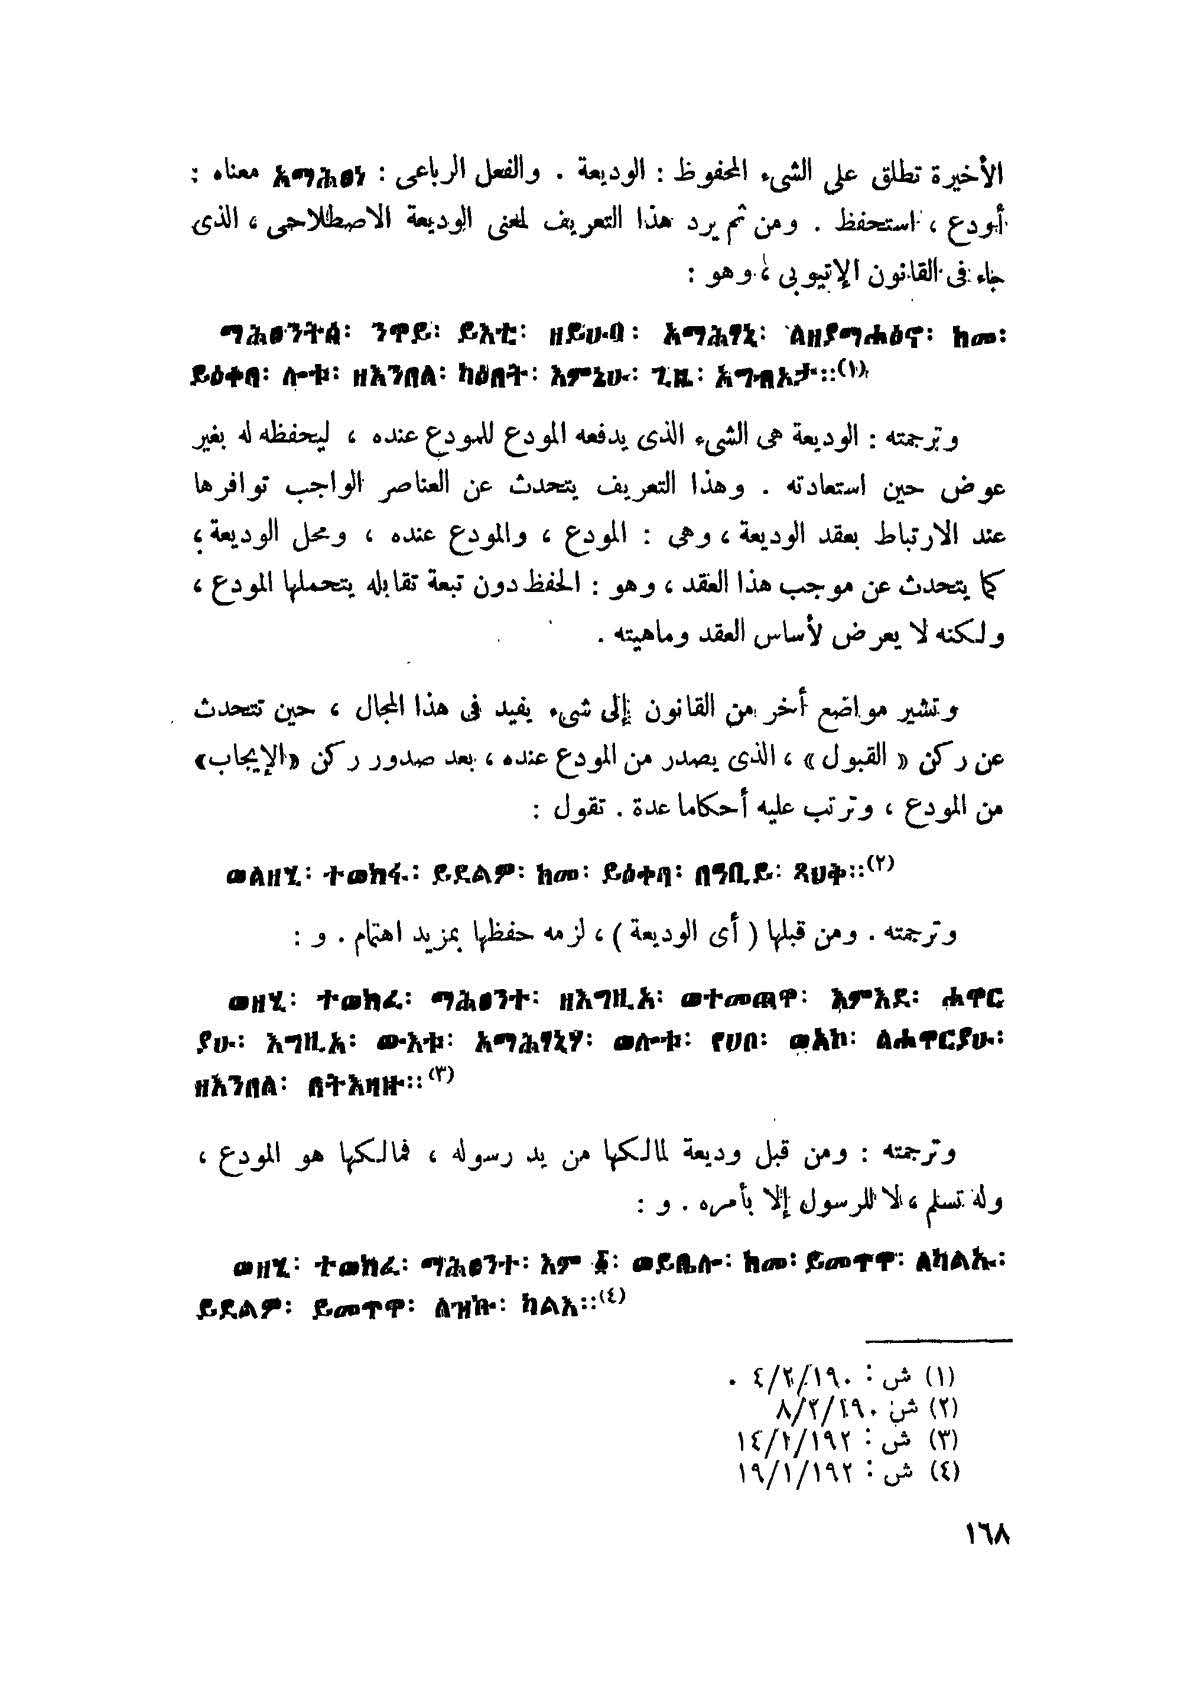 الأخيرة تطلق على الشيء المحفوظ : الوديعة . والفعل الرباعى : አማሕፀነ معناه :
أودع ، استحفظ . ومن ثم يرد هذا التعريف لمعنى الوديعة الاصطلاحى ، الذى
جاء فى القانون الإتيوبى ، وهو :
ማሕፀንትሰ፡ ንዋይ፡ ይእቲ፡ ዘይሁብ፡ አማሕፃኒ፡ ለዘያማሐፅኖ፡ ከመ፡
ይዕቀብ፡ ሎቱ፡ ዘእንበለ፡ ካዕበት፡ እምኔሁ፡ ጊዜ፡ አግብአታ፡፡(١)
وترجمته : الوديعة هى الشيء الذى يدفعه المودع للمودع عنده ، ليحفظه له بغير
عوض حين استعادته . وهذا التعريف يتحدث عن العناصر الواجب توافرها
عند الارتباط بعقد الوديعة ، وهى : المودع ، والمودع عنده ، ومحل الوديعة ؛
كما يتحدث عن موجب هذا العقد ، وهو : الحفظ دون تبعة تقابله يتحملها المودع ،
ولكنه لا يعرض لأساس العقد وماهيته .
وتشير مواضع أخر من القانون إلى شيء يفيد فى هذا المجال ، حين تتحدث
عن ركن « القبول » ، الذى يصدر من المودع عنده ، بعد صدور ركن «الإيجاب»
من المودع ، وترتب عليه أحكاما عدة . تقول :
ወለዘሂ፡ ተወክፋ፡ ይደልዎ፡ ከመ፡ ይዕቀብ፡ በዓቢይ፡ ጻህቅ፡፡(٢)
وترجمته . ومن قبلها ( أى الوديعة ) ، لزمه حفظها بمزيد اهتمام . و :
ወዘሂ፡ ተወክፈ፡ ማሕፀንተ፡ ዘእግዚአ፡ ወተመጠዋ፡ እምእደ፡ ሐዋር
ያሁ፡ እግዚአ፡ ውእቱ፡ አማሕፃኒሃ፡ ወሎቱ፡ የሀበ፡ ወአኮ፡ ለሐዋርያሁ፡
ዘእንበለ፡ በትእዛዙ፡፡(٣)
وترجمته : ومن قبل وديعة لمالكها من يد رسوله ، فمالكها هو المودع ،
وله تسلم ، لا للرسول إلا بأمره . و :
ወዘሂ፡ ተወክፈ፡ ማሕፀንተ፡ እም ፩፡ ወይቤሎ፡ ከመ፡ ይመጥዋ፡ ለካልኡ፡
ይደልዎ፡ ይመጥዋ፡ ለዝኩ፡ ካልእ፡፡(٤)
(١) ش : ٤/٢/١٩٠ .
(٢) ش ٨/٢/١٩٠
(٣) ش : ١٤/١/١٩٢
(٤) ش : ١٩/١/١٩٢
١٦٨